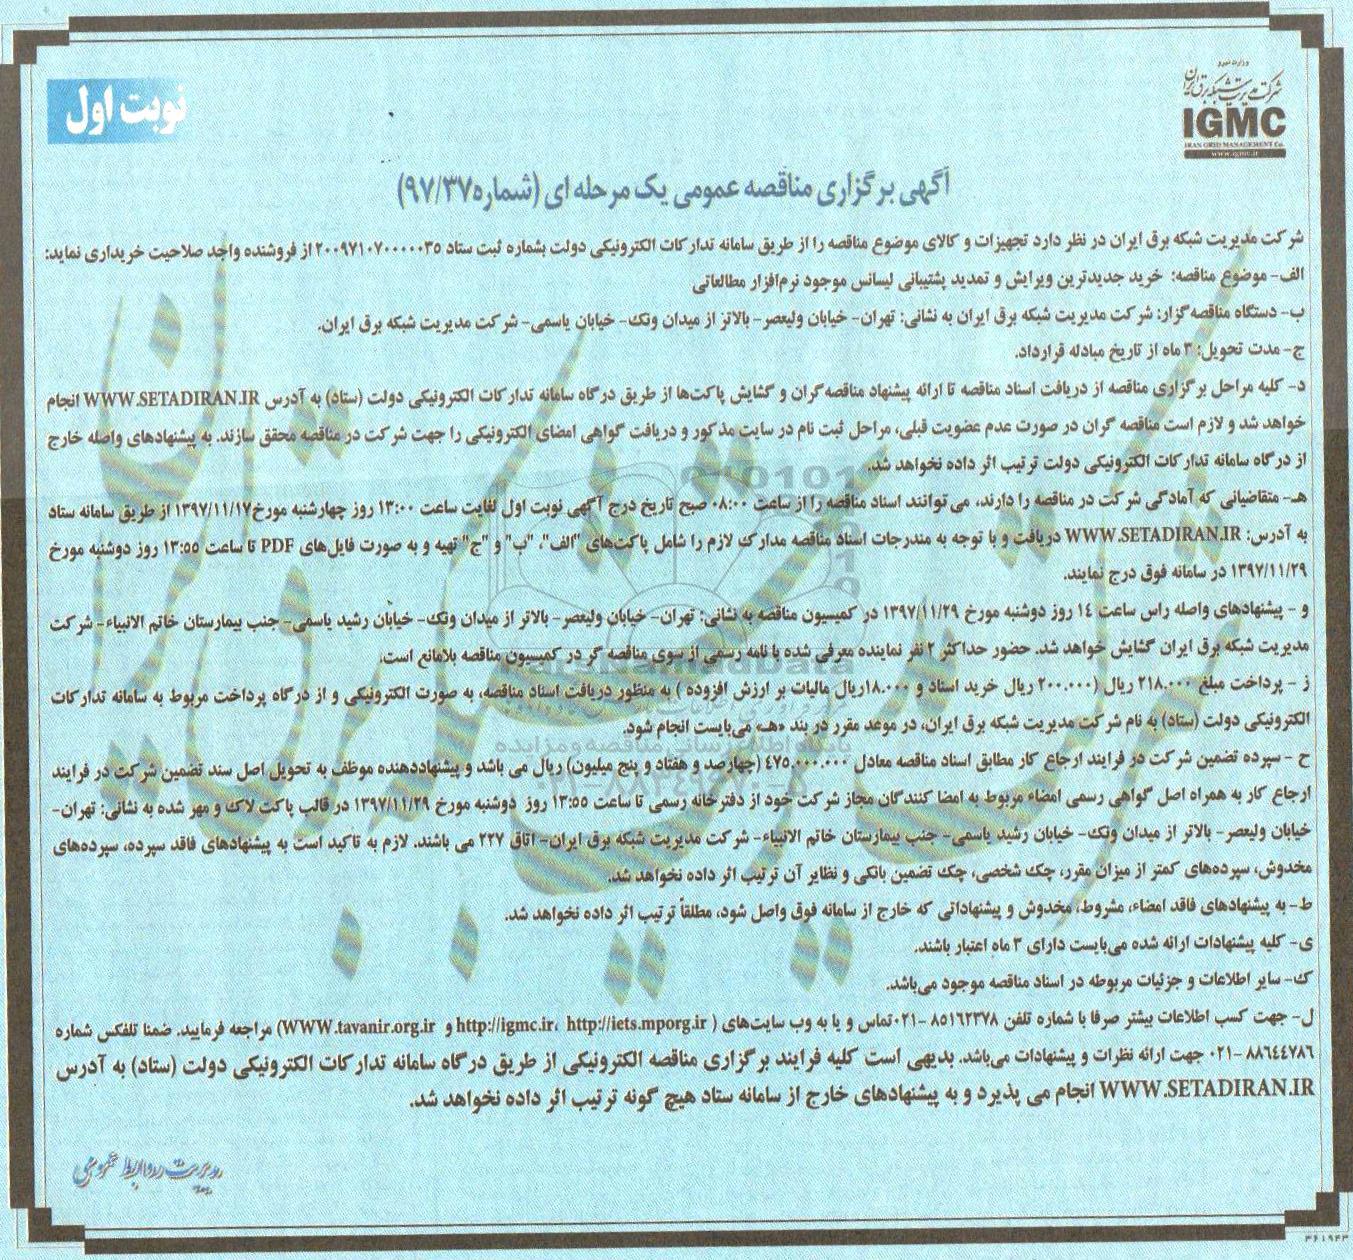 وزارت نیرو
شرکت مدیریت شبکه برق ایران
IGMC
IRAN GRID MANAGEMENT Co.
www.igmc.ir
نوبت اول
آگهی برگزاری مناقصه عمومی یک مرحله ای (شماره۹۷/۳۷)
شرکت مدیریت شبکه برق ایران در نظر دارد تجهیزات و کالای موضوع مناقصه را از طریق سامانه تدارکات الکترونیکی دولت بشماره ثبت ستاد ۲۰۰۹۷۱۰۷۰۰۰۰۰۳۵ از فروشنده واجد صلاحیت خریداری نماید:
الف- موضوع مناقصه: خرید جدیدترین ویرایش و تمدید پشتیبانی لیسانس موجود نرم‌افزار مطالعاتی
ب- دستگاه مناقصه گزار: شرکت مدیریت شبکه برق ایران به نشانی: تهران- خیابان ولیعصر- بالاتر از میدان ونک- خیابان یاسمی- شرکت مدیریت شبکه برق ایران.
ج- مدت تحویل: ۳ ماه از تاریخ مبادله قرارداد.
د- کلیه مراحل برگزاری مناقصه از دریافت اسناد مناقصه تا ارائه پیشنهاد مناقصه‌گران و گشایش پاکت‌ها از طریق درگاه سامانه تدارکات الکترونیکی دولت (ستاد) به آدرس WWW.SETADIRAN.IR انجام
خواهد شد و لازم است مناقصه گران در صورت عدم عضویت قبلی، مراحل ثبت نام در سایت مذکور و دریافت گواهی امضای الکترونیکی را جهت شرکت در مناقصه محقق سازند. به پیشنهادهای واصله خارج
از درگاه سامانه تدارکات الکترونیکی دولت ترتیب اثر داده نخواهد شد.
هـ- متقاضیانی که آمادگی شرکت در مناقصه را دارند، می توانند اسناد مناقصه را از ساعت ۰۸:۰۰ صبح تاریخ درج آگهی نوبت اول لغایت ساعت ۱۳:۰۰ روز چهارشنبه مورخ۱۳۹۷/۱۱/۱۷ از طریق سامانه ستاد
به آدرس: WWW.SETADIRAN.IR دریافت و با توجه به مندرجات اسناد مناقصه مدارک لازم را شامل پاکت‌های "الف"، "ب" و "ج" تهیه و به صورت فایل‌های PDF تا ساعت ۱۳:۵۵ روز دوشنبه مورخ
۱۳۹۷/۱۱/۲۹ در سامانه فوق درج نمایند.
و - پیشنهادهای واصله راس ساعت ۱۴ روز دوشنبه مورخ ۱۳۹۷/۱۱/۲۹ در کمیسیون مناقصه به نشانی: تهران- خیابان ولیعصر- بالاتر از میدان ونک- خیابان رشید یاسمی- جنب بیمارستان خاتم الانبیاء- شرکت
مدیریت شبکه برق ایران گشایش خواهد شد. حضور حداکثر ۲ نفر نماینده معرفی شده با نامه رسمی از سوی مناقصه گر در کمیسیون مناقصه بلامانع است.
ز - پرداخت مبلغ ۲۱۸.۰۰۰ ریال (۲۰۰.۰۰۰ ریال خرید اسناد و ۱۸.۰۰۰ریال مالیات بر ارزش افزوده ) به منظور دریافت اسناد مناقصه، به صورت الکترونیکی و از درگاه پرداخت مربوط به سامانه تدارکات
الکترونیکی دولت (ستاد) به نام شرکت مدیریت شبکه برق ایران، در موعد مقرر در بند «هـ» می‌بایست انجام شود.
ح - سپرده تضمین شرکت در فرایند ارجاع کار مطابق اسناد مناقصه معادل ۴۷۵.۰۰۰.۰۰۰ (چهارصد و هفتاد و پنج میلیون) ریال می باشد و پیشنهاددهنده موظف به تحویل اصل سند تضمین شرکت در فرایند
ارجاع کار به همراه اصل گواهی رسمی امضاء مربوط به امضا کنندگان مجاز شرکت خود از دفترخانه رسمی تا ساعت ۱۳:۵۵ روز دوشنبه مورخ ۱۳۹۷/۱۱/۲۹ در قالب پاکت لاک و مهر شده به نشانی: تهران-
خیابان ولیعصر- بالاتر از میدان ونک- خیابان رشید یاسمی- جنب بیمارستان خاتم الانبیاء- شرکت مدیریت شبکه برق ایران- اتاق ۲۲۷ می باشند. لازم به تاکید است به پیشنهادهای فاقد سپرده، سپرده‌های
مخدوش، سپرده‌های کمتر از میزان مقرر، چک شخصی، چک تضمین بانکی و نظایر آن ترتیب اثر داده نخواهد شد.
ط- به پیشنهادهای فاقد امضاء، مشروط، مخدوش و پیشنهاداتی که خارج از سامانه فوق واصل شود، مطلقاً ترتیب اثر داده نخواهد شد.
ی- کلیه پیشنهادات ارائه شده می‌بایست دارای ۳ ماه اعتبار باشند.
ک- سایر اطلاعات و جزئیات مربوطه در اسناد مناقصه موجود می‌باشد.
ل- جهت کسب اطلاعات بیشتر صرفا با شماره تلفن ۸۵۱۶۲۳۷۸ -۰۲۱تماس و یا به وب سایت‌های ( http://igmc.ir، http://iets.mporg.ir و WWW.tavanir.org.ir) مراجعه فرمایید. ضمنا تلفکس شماره
۸۸۶۴۴۷۸۶ -۰۲۱ جهت ارائه نظرات و پیشنهادات می‌باشد. بدیهی است کلیه فرایند برگزاری مناقصه الکترونیکی از طریق درگاه سامانه تدارکات الکترونیکی دولت (ستاد) به آدرس
WWW.SETADIRAN.IR انجام می پذیرد و به پیشنهادهای خارج از سامانه ستاد هیچ گونه ترتیب اثر داده نخواهد شد.
مدیریت روابط عمومی
۳۶۱۹۴۳